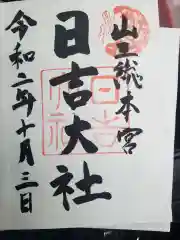 山王総本宮
日吉大社
令和二年十月三日